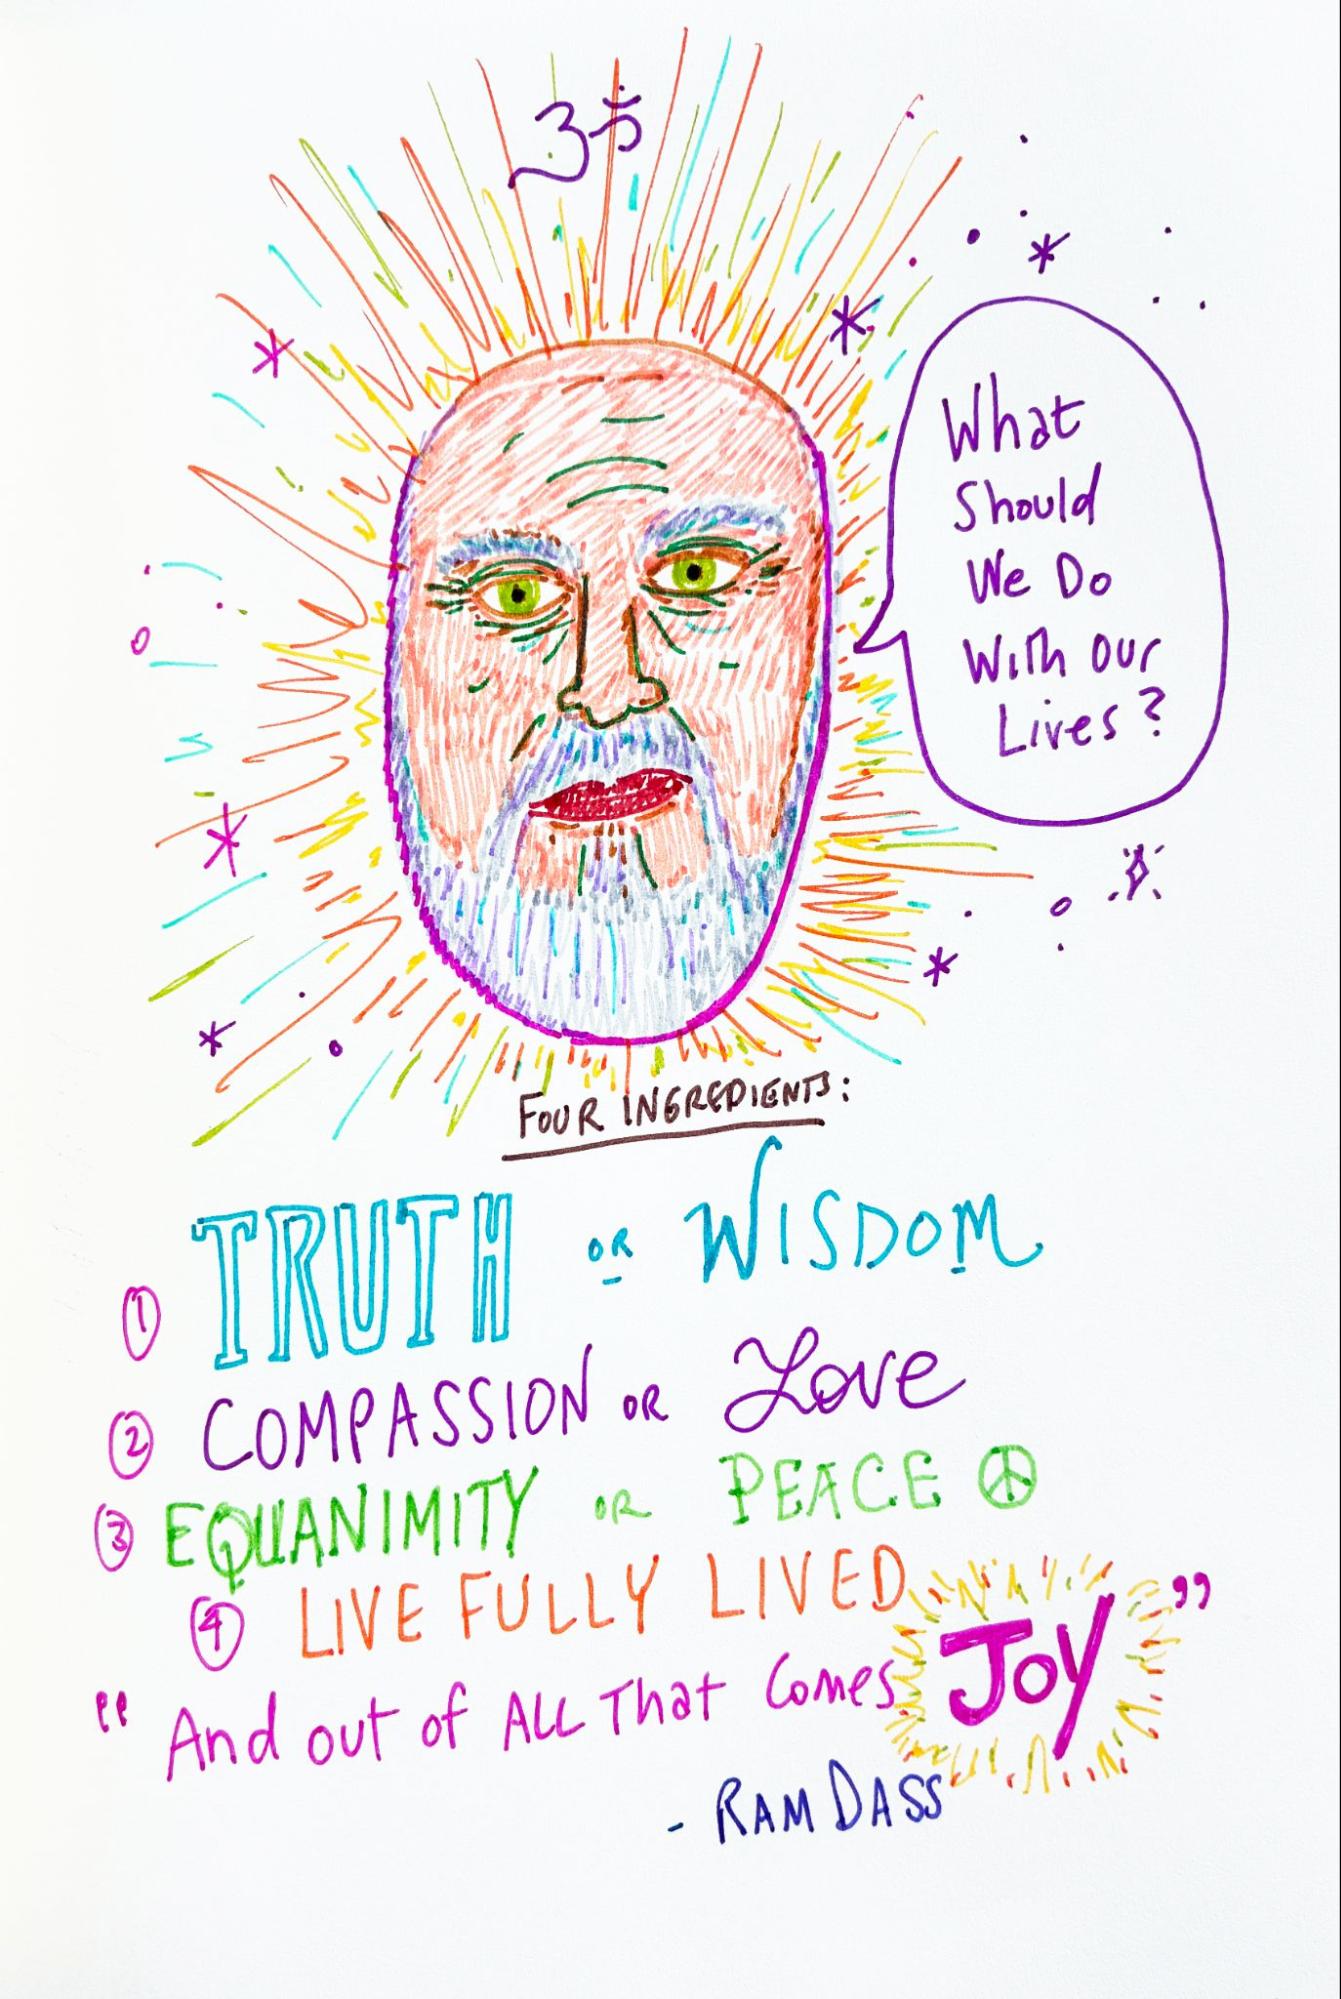 ॐ
What
Should
We Do
With Our
Lives?
FOUR INGREDIENTS:
① TRUTH OR WISDOM
② COMPASSION OR Love
③ EQUANIMITY OR PEACE ☮
④ LIVE FULLY LIVED
"And out of ALL That Comes JOY"
- RAM DASS